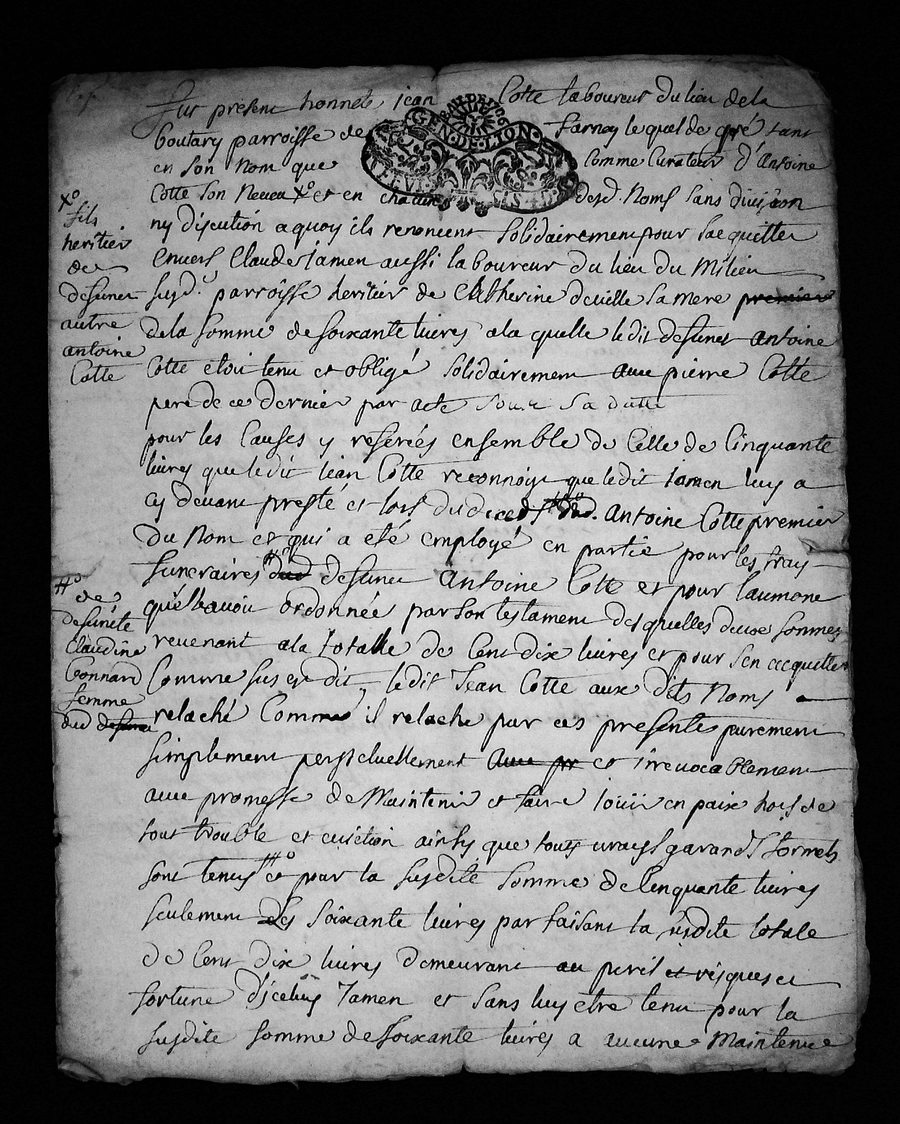 fut present honneste jean Cotte laboureur du lieu de la
boutary parroisse de farnay lequel de gré tant
en son Nom que Comme Curateur d'Antoine
Cotte son Neveu X° et en chacun desd. Noms sans division
ny discution a quoy ils renoncent solidairement pour saequitter
Envers Claude jamen aussi laboureur du lieu du Milieu
susd. parroisse heritier de Catherine deville sa mere premier
de la somme de soixante livres a la quelle ledit defunct antoine
Cotte etoit tenu et obligé solidairement avec pierre Cotte
pere de ce dernier par acte sous sa datte
pour les Causes y reserées ensemble de Celle de Cinquante
livres que ledit jean Cotte reconnoit que ledit jamen luy a
cy devant presté et lors du deced dud. Antoine Cotte premier
du Nom et qui a été employé en partie pour les frais
funeraires dud defunct Antoine Cotte et pour laumone
qu'elle avoit ordonnée par son testament desquelles deux sommes
revenant a la totalle de Cent dix livres et pour sen acquitter
Comme sus est dit, ledit Jean Cotte aux dits Noms
relaché Comme il relache par ces presentes purement
simplement perpetuellement avec pr et irrevocablement
avec promesse de Maintenir et faire jouir en paix hors de
tout trouble et eviction ainsy que touts vrays garands formels
sont tenus ce pour la susdite somme de Cinquante livres
seulement les soixante livres parfaisant la susdite totale
de Cent dix livres demeurant au peril et risques et
fortune d'iceluy Jamen et sans luy etre tenu pour la
susdite somme de soixante livres a aucune Maintenue
X°
fils
heritier
de
defunct
autre
antoine
Cotte
#°
de
defunte
Claudine
bonnard
femme
dud defunct
GEN. DE LION